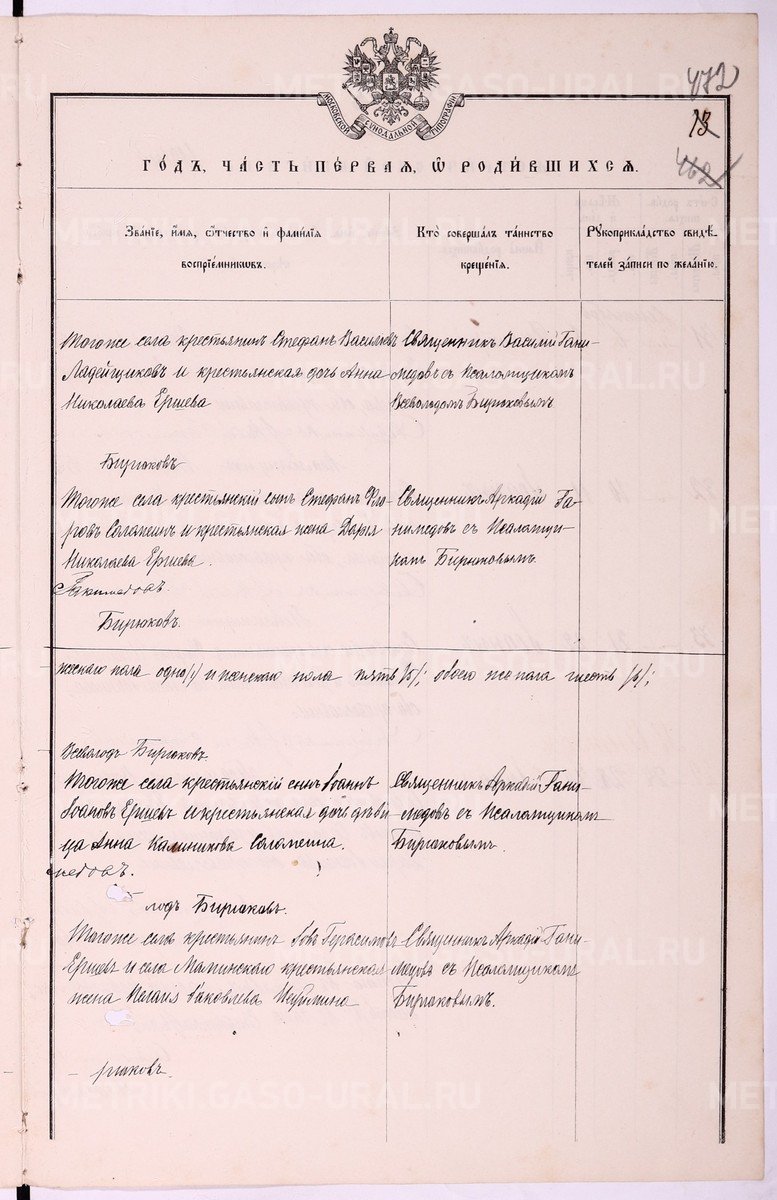 472
13
462
МОСКОВСКОЙ СУНОДАЛЬНОЙ ТИПОГРАФІИ
ГОДЪ, ЧАСТЬ ПЕРВАЯ, Ѡ РОДИВШИХСЯ.
Званіе, имя, ѻтчество и фамилія
воспріемниковъ.
Кто совершалъ таинство
крещенія.
Рукоприкладство свидѣ-
телей записи по желанію.
Тогоже села крестьянинъ Стефанъ Васильевъ
Ладейщиковъ и крестьянская дочь Анна
Николаева Ершева
Священникъ Василій Гани-
медовъ съ Псаломщикомъ
Всеволодомъ Бирюковымъ
Бирюковъ
Тогоже села крестьянскій сынъ Стефанъ Фло-
ровъ Соломеинъ и крестьянская жена Дарія
Николаева Ершева.
Священникъ Аркадій Га-
нимедовъ съ Псаломщи-
комъ Бирюковымъ.
Ганимедовъ.
Бирюковъ.
жескаго пола одно /1/ и женскаго пола пять /5/; обоего же пола шесть /6/;
Всеволодъ Бирюковъ
Тогоже села крестьянскій сынъ Іоаннъ
Іоановъ Ершевъ и крестьянская дочь дѣви
ца Анна Калиникова Соломеина.
Священникъ Аркадій Гани-
медовъ съ Псаломщикомъ
Бирюковымъ.
медовъ.
лодъ Бирюковъ.
Тогоже села крестьянинъ Іовъ Герасимовъ
Ершевъ и села Маминскаго крестьянская
жена Іаковлева
Священникъ Аркадій Гани-
медовъ съ Псаломщикомъ
Бирюковымъ.
рюковъ.
METRIKI.GASO-URAL.RU